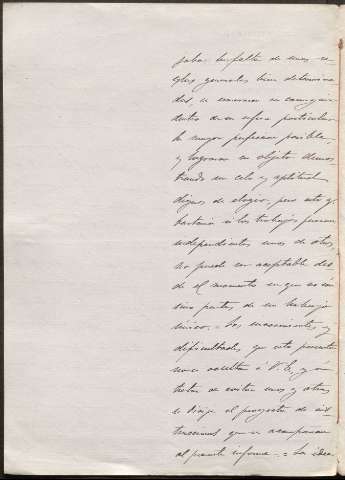 falta de unas re-
glas generales bien determina
das, se 
dentro de su esfera particular
la mayor perfeccion posible,
y lograron su objeto demos
trando un celo y aptitud
dignos de elogio; pero esto q.
bastaria si los trabajos fueran
independientes unos de otros,
no puede ser aceptable des-
de el momento en que no son
sino partes de un trabajo
único. = Los inconvenientes y
dificultades que esto presenta
no se ocultan á V. E., y á
tratar de evitar unos y otras
se dirije el proyecto de ins-
trucciones que se acompañan
al presente informe. = La idea